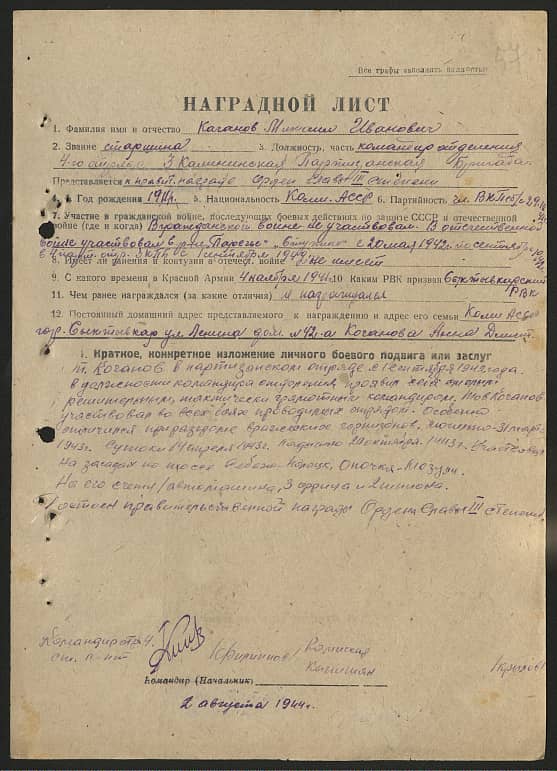 Все графы заполнять полностью
НАГРАДНОЙ ЛИСТ
1. Фамилия имя и отчество Каганов Михаил Иванович
2. Звание старшина 3. Должность, часть командир отделения
4-го отряда 3 Калининская Партизанская Бригада
Представляется к правит. награде орден Славы III степени
4. Год рождения 5. Национальность Коми АССР 6. Партийность
7. Участие в гражданской войне, последующих боевых действиях по защите СССР и отечественной
войне (где и когда) В гражданской войне не участвовал. В отечественной
войне участвовал с 20 мая 1942
8. Имеет ли ранения и контузии в отечест. войне не имеет
9. С какого времени в Красной Армии 4 ноября 10 Каким РВК призван Сыктывкарским
РВК
11. Чем ранее награждался (за какие отличия) не награждался
12. Постоянный домашний адрес представляемого к награждению и адрес его семьи Коми АССР
гор. Сыктывкар ул Ленина дом № 42-а Каганова Анна
I. Краткое, конкретное изложение личного боевого подвига или заслуг
т. Каганов в партизанском отряде с 1 сентября года.
в должности командира отделения, проявил себя смелым
решительным, тактически грамотным командиром, Тов Каганов
участвовал во всех боях проводимых отрядом. Особенно
отличился при разгроме вражеских гарнизонов. 31 марта
1943г. Сутоки 14 апреля 1943г. октября 1943г. участвовал
на засадах на шоссе Полоцк, Опочка-
На его счету 1 автомашина, 3 фрица и 2 шпиона.
Достоин правительственной награды Ордена Славы III степени.
Командир отр. 4
ст. л-нт
Командир (Начальник)
2 августа 1944г.